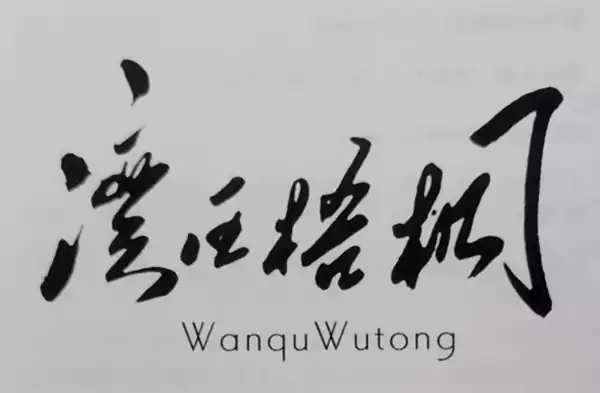 湾区梧桐
WanquWutong